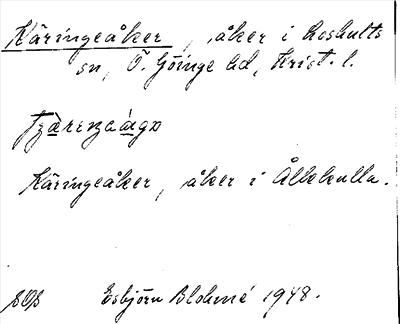 Käringeåker, åker i Loshults
sn, Ö. Göinge hd, Krist. l.
Käringeåker, åker i Ålbekulla.
Esbjörn Blohmé 1948.